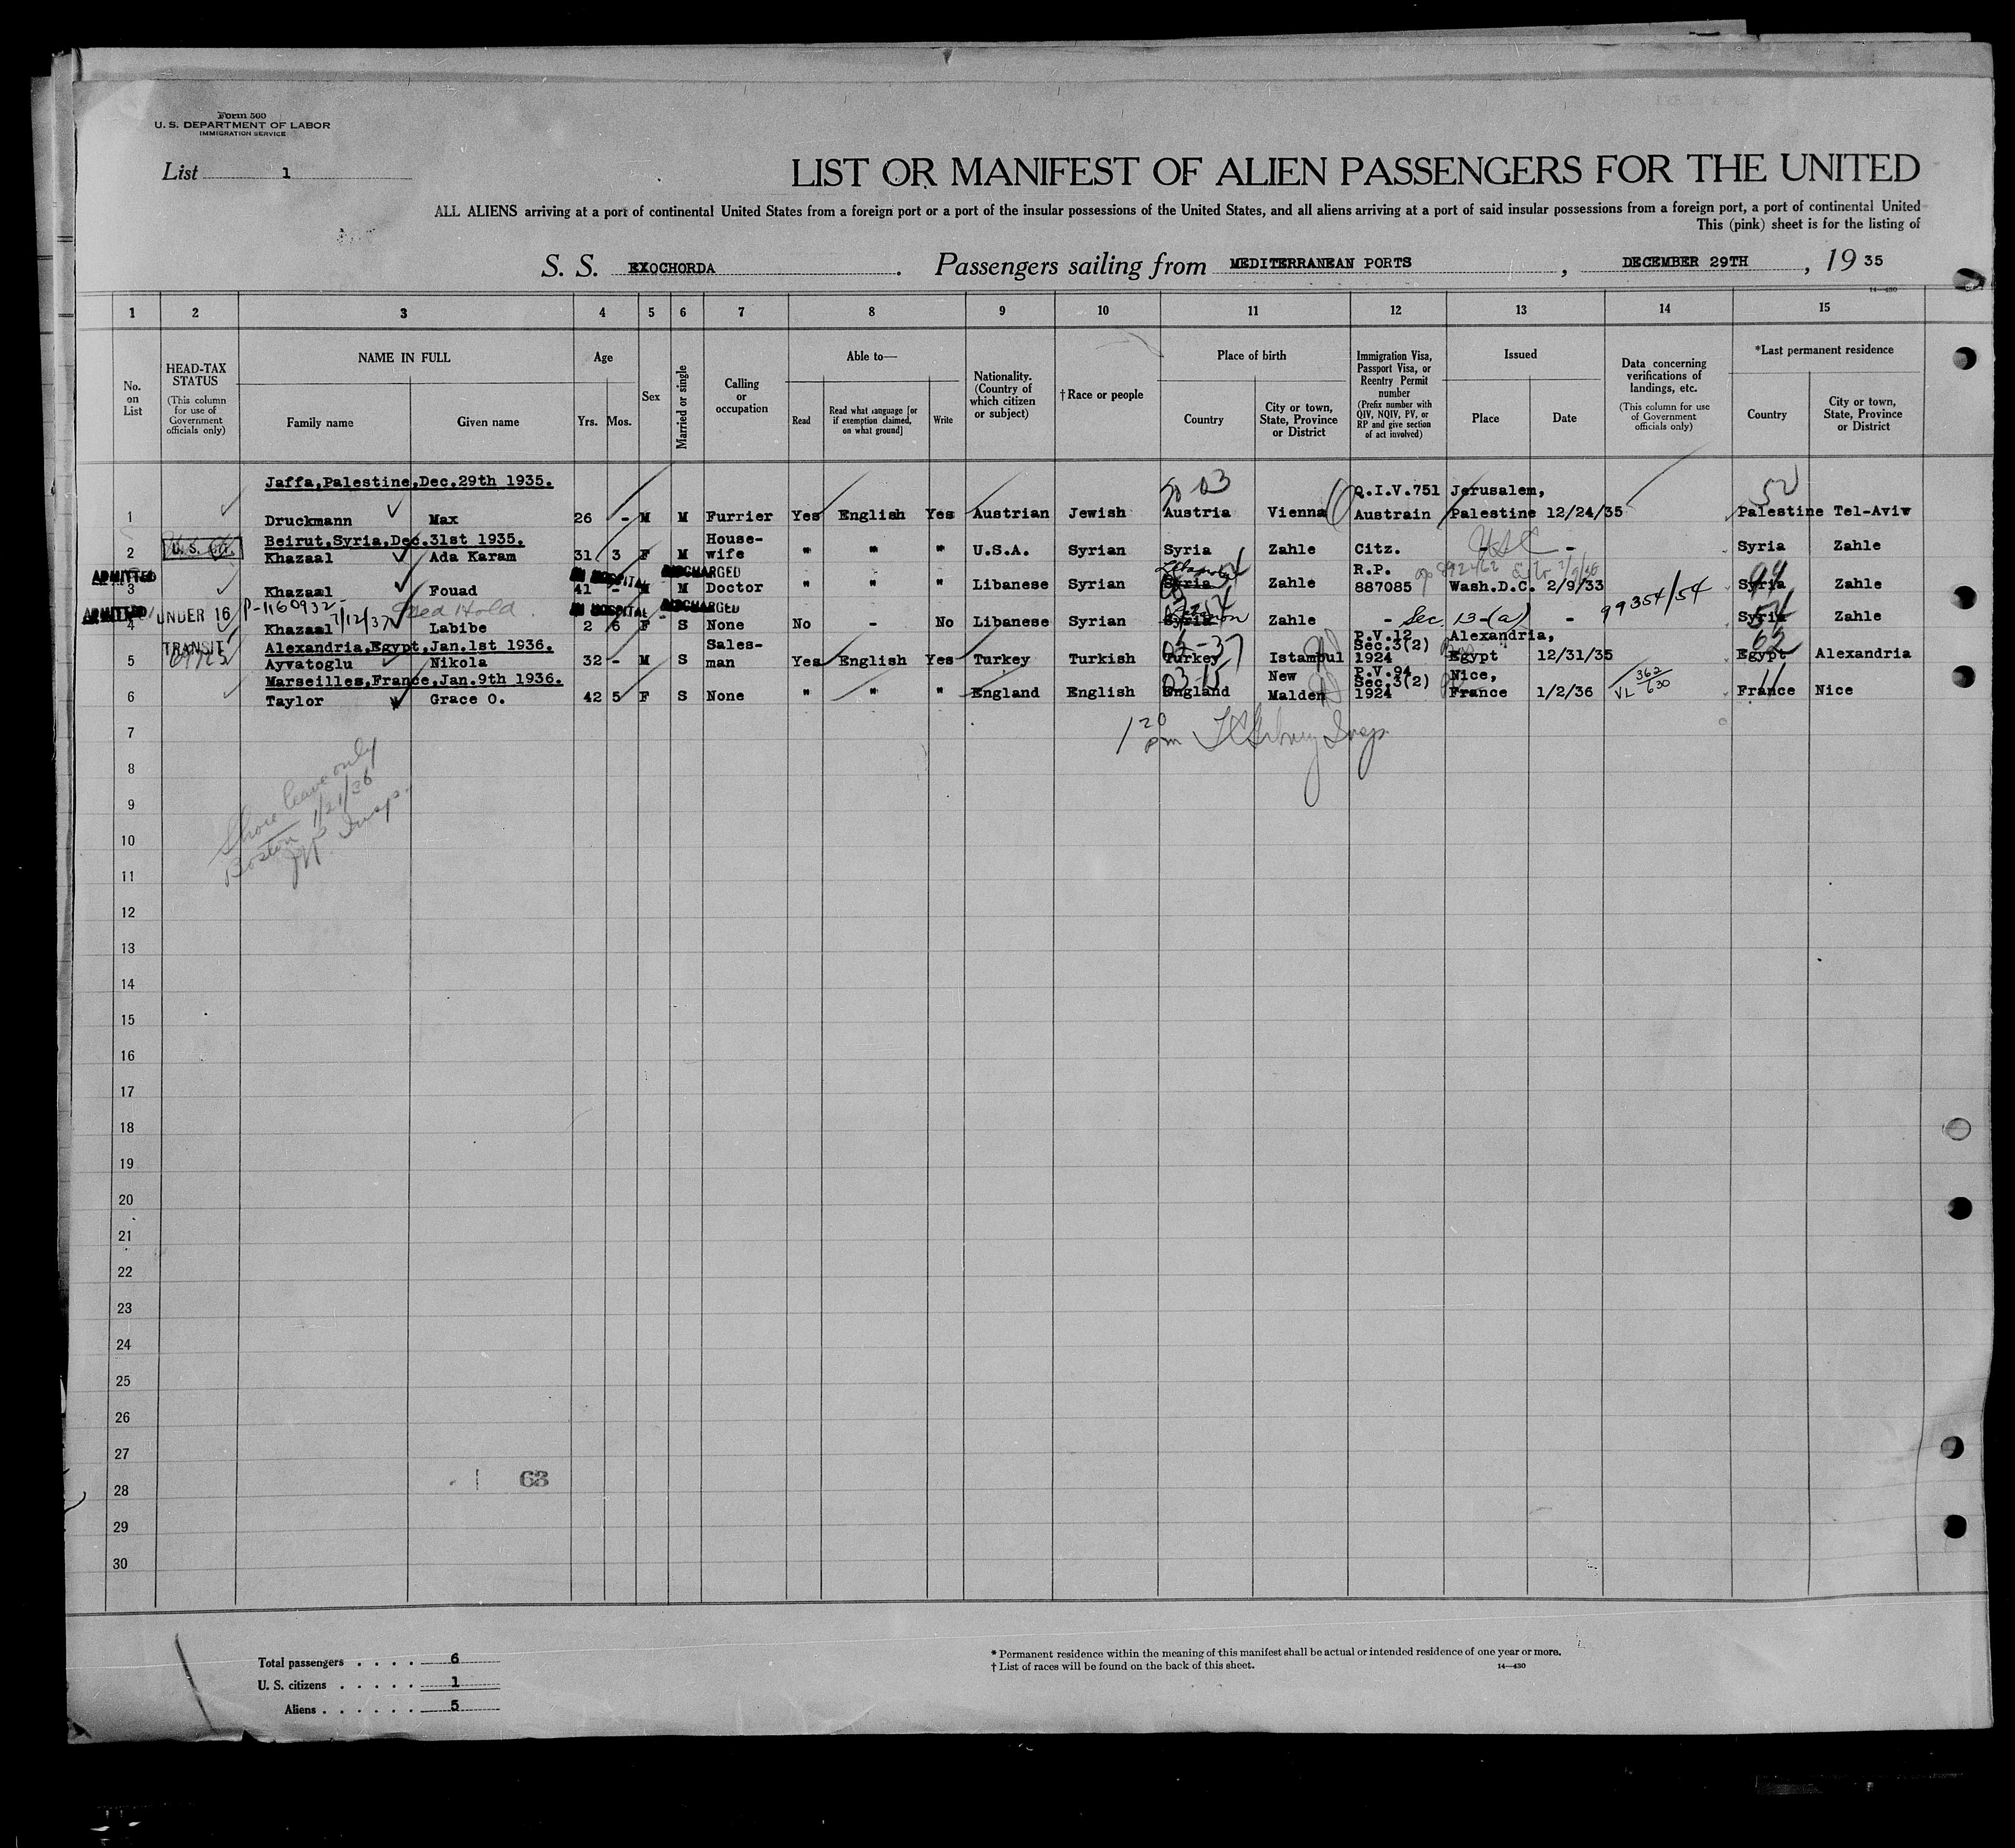 Form 500
U. S. DEPARTMENT OF LABOR
IMMIGRATION SERVICE
List 1
LIST OR MANIFEST OF ALIEN PASSENGERS FOR THE UNITED
ALL ALIENS arriving at a port of continental United States from a foreign port or a port of the insular possessions of the United States, and all aliens arriving at a port of said insular possessions from a foreign port, a port of continental United
This (pink) sheet is for the listing of
S. S. EXOCHORDA. Passengers sailing from MEDITERRANEAN PORTS, DECEMBER 29TH, 1935
14—430
1 2 3 4 5 6 7 8 9 10 11 12 13 14 15
No. on List
HEAD-TAX STATUS
(This column for use of Government officials only)
NAME IN FULL
Family name Given name
Age
Yrs. Mos.
Sex
Married or single
Calling or occupation
Able to—
Read
Read what language [or if exemption claimed, on what ground]
Write
Nationality. (Country of which citizen or subject)
† Race or people
Place of birth
Country
City or town, State, Province or District
Immigration Visa, Passport Visa, or Reentry Permit number
(Prefix number with QIV, NQIV, PV, or RP and give section of act involved)
Issued
Place Date
Data concerning verifications of landings, etc.
(This column for use of Government officials only)
*Last permanent residence
Country
City or town, State, Province or District
Jaffa,Palestine,Dec.29th 1935. Q.I.V.751 Jerusalem,
1 Druckmann Max 26 - M M Furrier Yes English Yes Austrian Jewish Austria Vienna Austrain Palestine 12/24/35 Palestine Tel-Aviv
Beirut,Syria,Dec.31st 1935. House-
2 U. S. Khazaal Ada Karam 31 3 F M wife " " " U.S.A. Syrian Syria Zahle Citz. USC - Syria Zahle
ADMITTED IN HOSPITAL DISCHARGED R.P.
3 Khazaal Fouad 41 - M M Doctor " " " Libanese Syrian Syria Zahle 887085 Wash.D.C. 2/9/33 Syria Zahle
ADMITTED UNDER 16 P-1160932- Med Hold IN HOSPITAL DISCHARGED
99354/54
4 Khazaal 7/12/37 Labibe 2 6 F S None No - No Libanese Syrian Syria Zahle - Sec. 13-(a) - Syria Zahle
TRANSIT Alexandria,Egypt,Jan.1st 1936. Sales- P.V.12 Alexandria,
Sec.3(2)
5 Ayvatoglu Nikola 32 - M S man Yes English Yes Turkey Turkish Turkey Istambul 1924 Egypt 12/31/35 Egypt Alexandria
Marseilles,France,Jan.9th 1936. New P.V.94 Nice,
Sec.3(2)
6 Taylor Grace O. 42 5 F S None " " " England English England Malden 1924 France 1/2/36 VL 362/630 France Nice
7
1 20 pm Insp.
8
Shore leave only
9
Boston 1/21/36
10
Insp.
11
12
13
14
15
16
17
18
19
20
21
22
23
24
25
26
27
63
28
29
30
Total passengers . . . . 6
U. S. citizens . . . . . 1
Aliens . . . . . . 5
* Permanent residence within the meaning of this manifest shall be actual or intended residence of one year or more.
† List of races will be found on the back of this sheet. 14—430